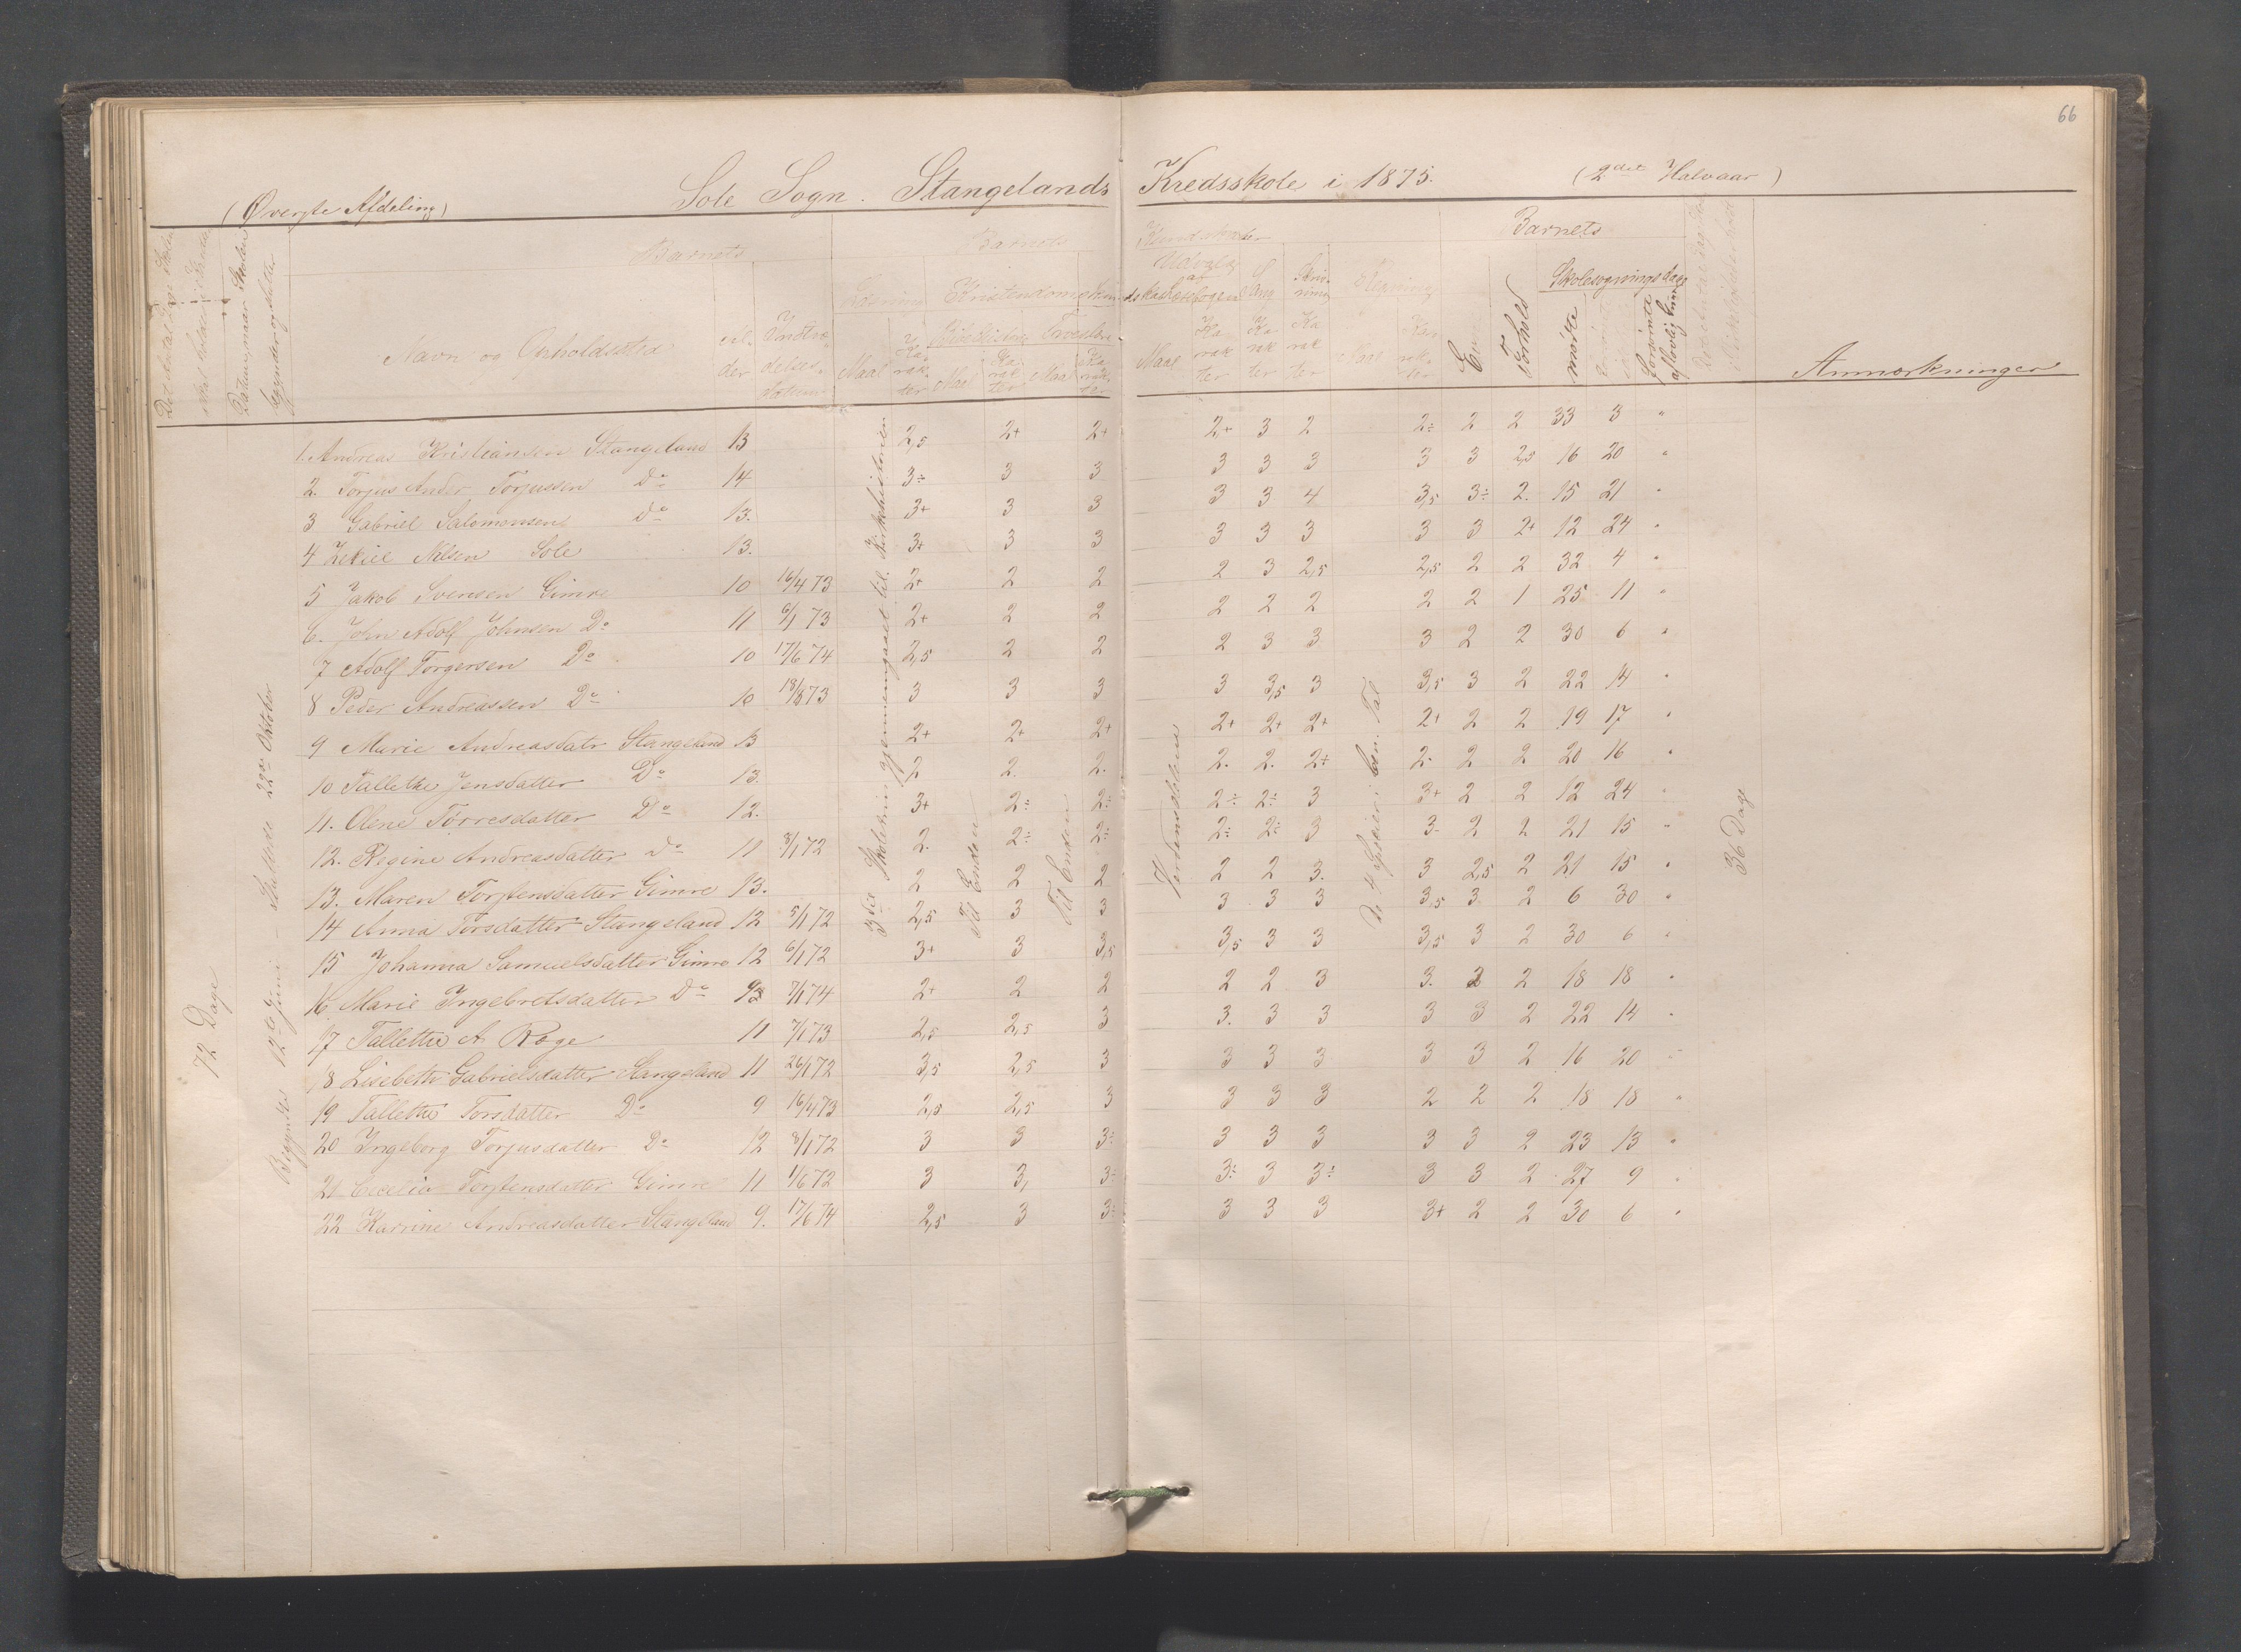 66
(Øverste Afdeling) Sole Sogn. Stangelands Kredsskole i 1875. (2det Halvaar)
Barnets Barnets Kundskaber Barnets
Navn og Opholdssted Al-der Indtræ-delses-datum Maal Ka-rak-ter Maal Ka-rak-ter Maal Ka-rak-ter Maal Ka-rak-ter Ka-rak-ter Ka-rak-ter Maal Kar-rak-ter Forhold Skolesøgningsdage mødte forsømte af lovlig Grund Anmærkninger
72 Dage
Begyndte 12te Juni – Sluttede 22de Oktober
3die Skoletrin gjennemgaaet til Kirkehistorien
Til Enden
Til Enden
Verdensdelene
De 4 Spesier i ben. Tal
36 Dage
1. Andreas Kristiansen Stangeland 13 2,5 2+ 2+ 2+ 3 2 2÷ 2 2 33 3 "
2. Torjus Ander Torjussen Do 14 3÷ 3 3 3 3 3 3 3 2,5 16 20 "
3 Gabriel Salomonsen Do 13. 3+ 3 3 3 3 4 3,5 3÷ 2. 15 21 "
4 Zekiel Nilsen Sole 13. 3+ 3 3 3 3 3 3 3 2+ 12 24 "
5 Jakob Svensen Gimre 10 16/4 73 2+ 2 2 2 3 2,5 2,5 2 2 32 4 "
6. John Adolf Johnsen Do 11 6/1 73 2+ 2 2 2 2 2 2 2 1 25 11 "
7 Adolf Torgersen Do 10 17/6 74 2,5 2 2 2 3 3 3 2 2 30 6 "
8 Peder Andreassen Do 10 18/8 73 3 3 3 3 3,5 3 3,5 3 2 22 14 "
9 Marie Andreasdatr Stangeland 13 2+ 2+ 2+ 2+ 2+ 2+ 2+ 2 2 19 17 "
10 Tallethe Jensdatter Do 13. 2 2 2. 2. 2. 2÷ 2. 2 2 20 16 "
11. Olene Tørresdatter Do 12. 3+ 2÷ 2÷ 2÷ 2÷ 3 3+ 2 2 12 24 "
12. Regine Andreasdatter Do 11 8/1 72 2. 2÷ 2÷ 2÷ 2÷ 3 3. 2 2 21 15 "
13. Maren Torstensdatter Gimre 13. 2 2 2 2 2 3. 3 2,5 2 21 15 "
14 Anna Torsdatter Stangeland 12 5/1 72 2,5 3 3 3 3 3 3,5 3. 2 6 30 "
15 Johanna Samuelsdatter Gimre 12 6/1 72 3+ 3 3,5 3,5 3 3 3,5 3 2 30 6 "
16. Marie Ingebretsdatter Do 7/1 74 2+ 2 2 2 2 3 3. 2 2 18 18 "
17 Tallethe A Røge 11 7/1 73 2,5 2,5 3 3. 3 3 3 3 2 22 14 "
18 Lisebeth Gabrielsdatter Stangeland 11 26/1 72 3,5 2,5 3 3 3 3 3 3 2 16 20 "
19 Tallethe Torsdatter Do 9 16/4 73 2,5 2,5 3 3 3 3 2 2 2 18 18 "
20 Ingeborg Torjusdatter Do 12 8/1 72 3 3 3÷ 3 3 3 3 3 2 23 13 "
21 Cecelia Torstensdatter Gimre 11 1/6 72 3 3, 3÷ 3÷ 3 3÷ 3 3 2 27 9 "
22 Karrine Andreasdatter Stangeland 9. 17/6 74 2,5 3 3÷ 3 3 3 3+ 2 2 30 6 "